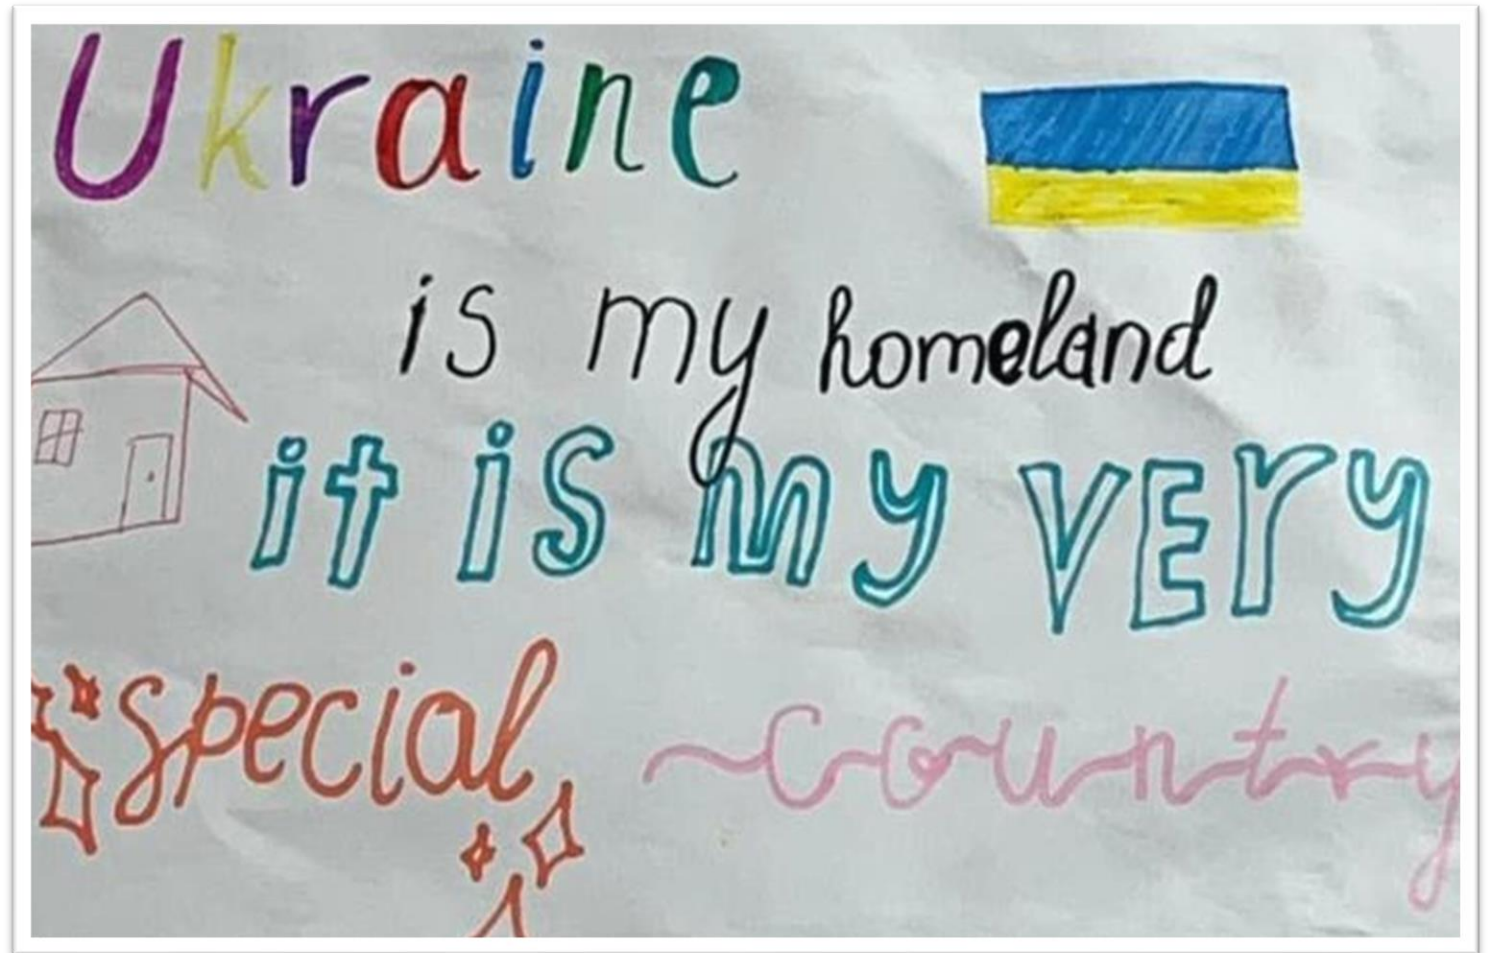 Ukraine
is my homeland
it is my VEry
special country